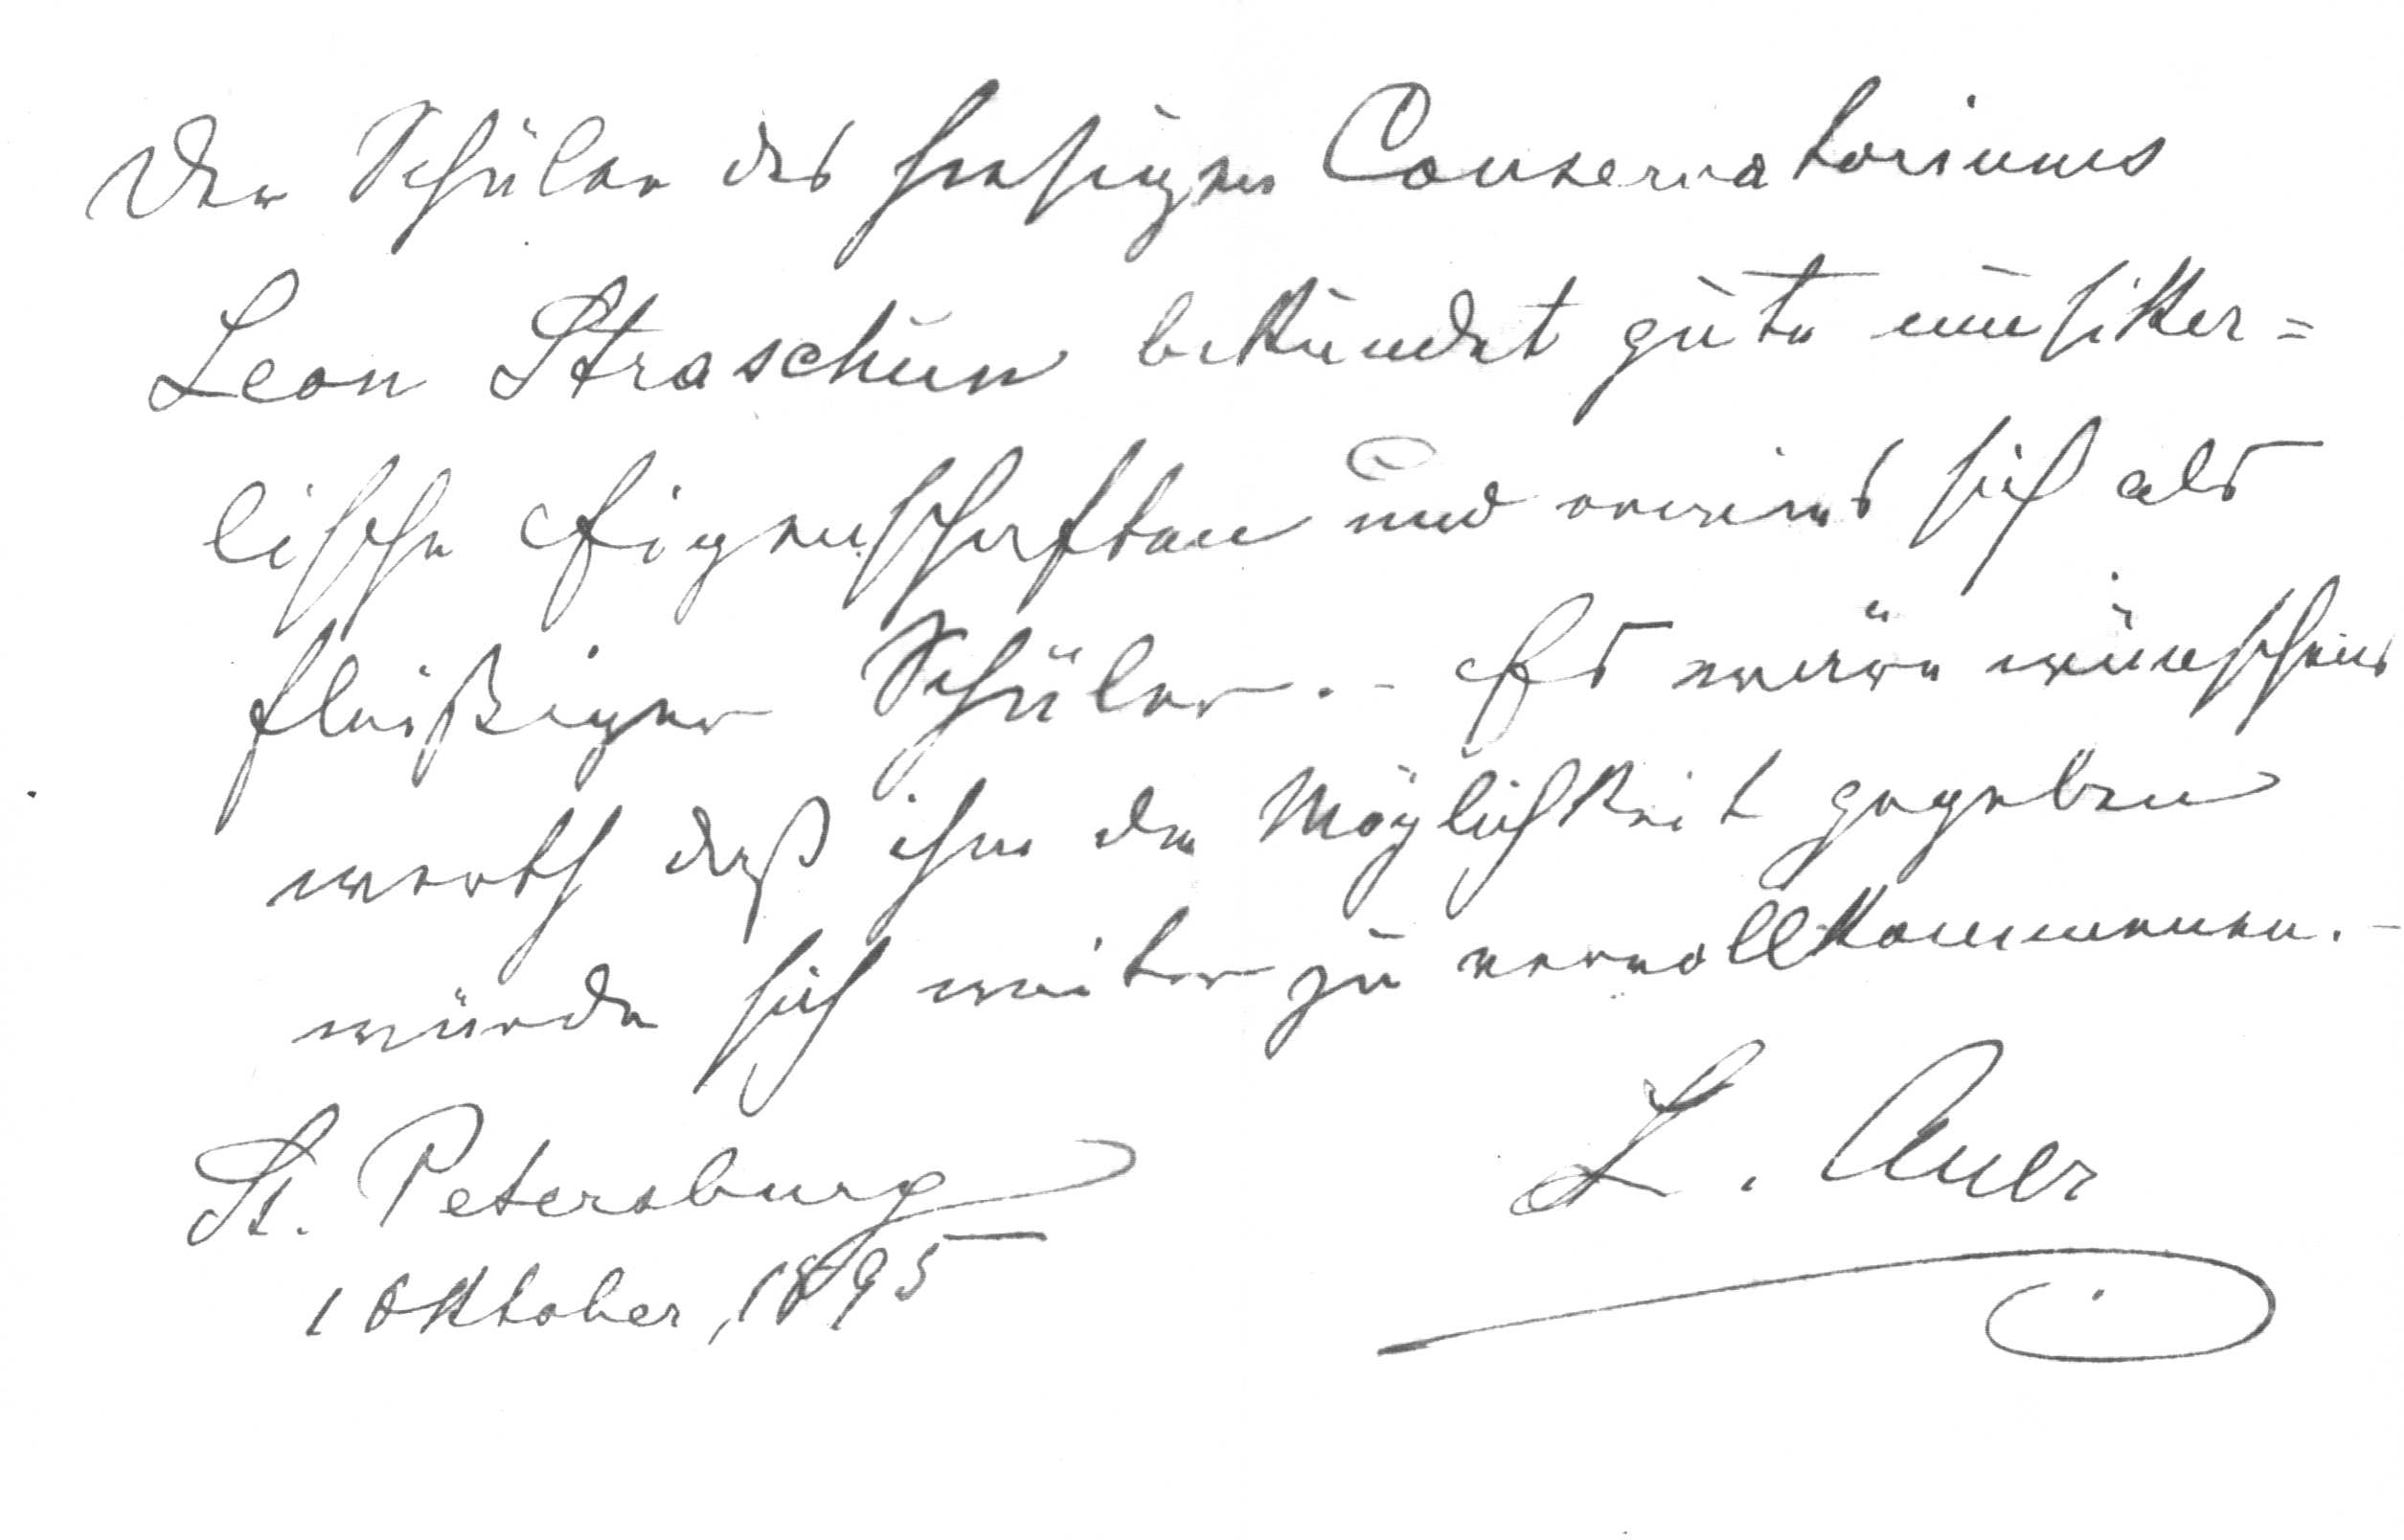 Der Schüler des hiesigen Conservatoriums
Leon Straschun bekundet gute musika=
lische Eigenschaften und erwies sich als
fleißiger Schüler. - Es wäre wünschens
werth daß ihm die Möglichkeit gegeben
würde sich weiter zu vervollkommenen. -
L. Auer
St. Petersburg
1 Oktober, 1895